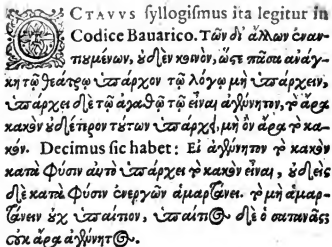 OCTAVVS syllogismus ita legitur in
Codice Bauarico. Τῶν δι' ἄλλων ἐναν-
τιυμένων, ὐδὲν κοινὸν, ὥστε πᾶσα ἀνάγ-
κη τῷ θεάτρῳ ὑπάρχον τῷ λόγῳ μὴ ὑπάρχειν,
ὑπάρχει δὲ τῷ ἀγαθῷ τῷ εἶναι ἀγέννητον, τὸ ἄρα
κακὸν ὐδέτερον τούτων ὑπάρχει, μὴ ὂν ἄρα τὸ κα-
κόν. Decimus sic habet: Εἰ ἀγέννητον τὸ κακὸν
κατὰ φύσιν αὐτὸ ὑπάρχει τὸ κακὸν εἶναι, ὐδεὶς
δὲ κατὰ φύσιν ἐνεργῶν ἁμαρτάνει. τὸ μὴ ἁμαρ-
τάνειν ὐχ ὑπαίτιον, ὑπαίτιος δὲ ὁ σατανᾶς
οὐκ ἄρα ἀγέννητος.